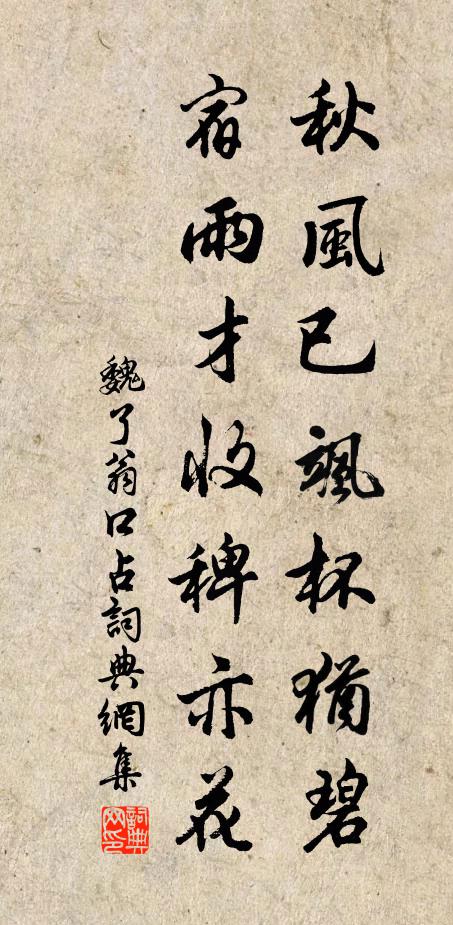 秋風已颯杯猶碧
宿雨才收稗亦花
魏了翁口占詞典網集
詞典網印